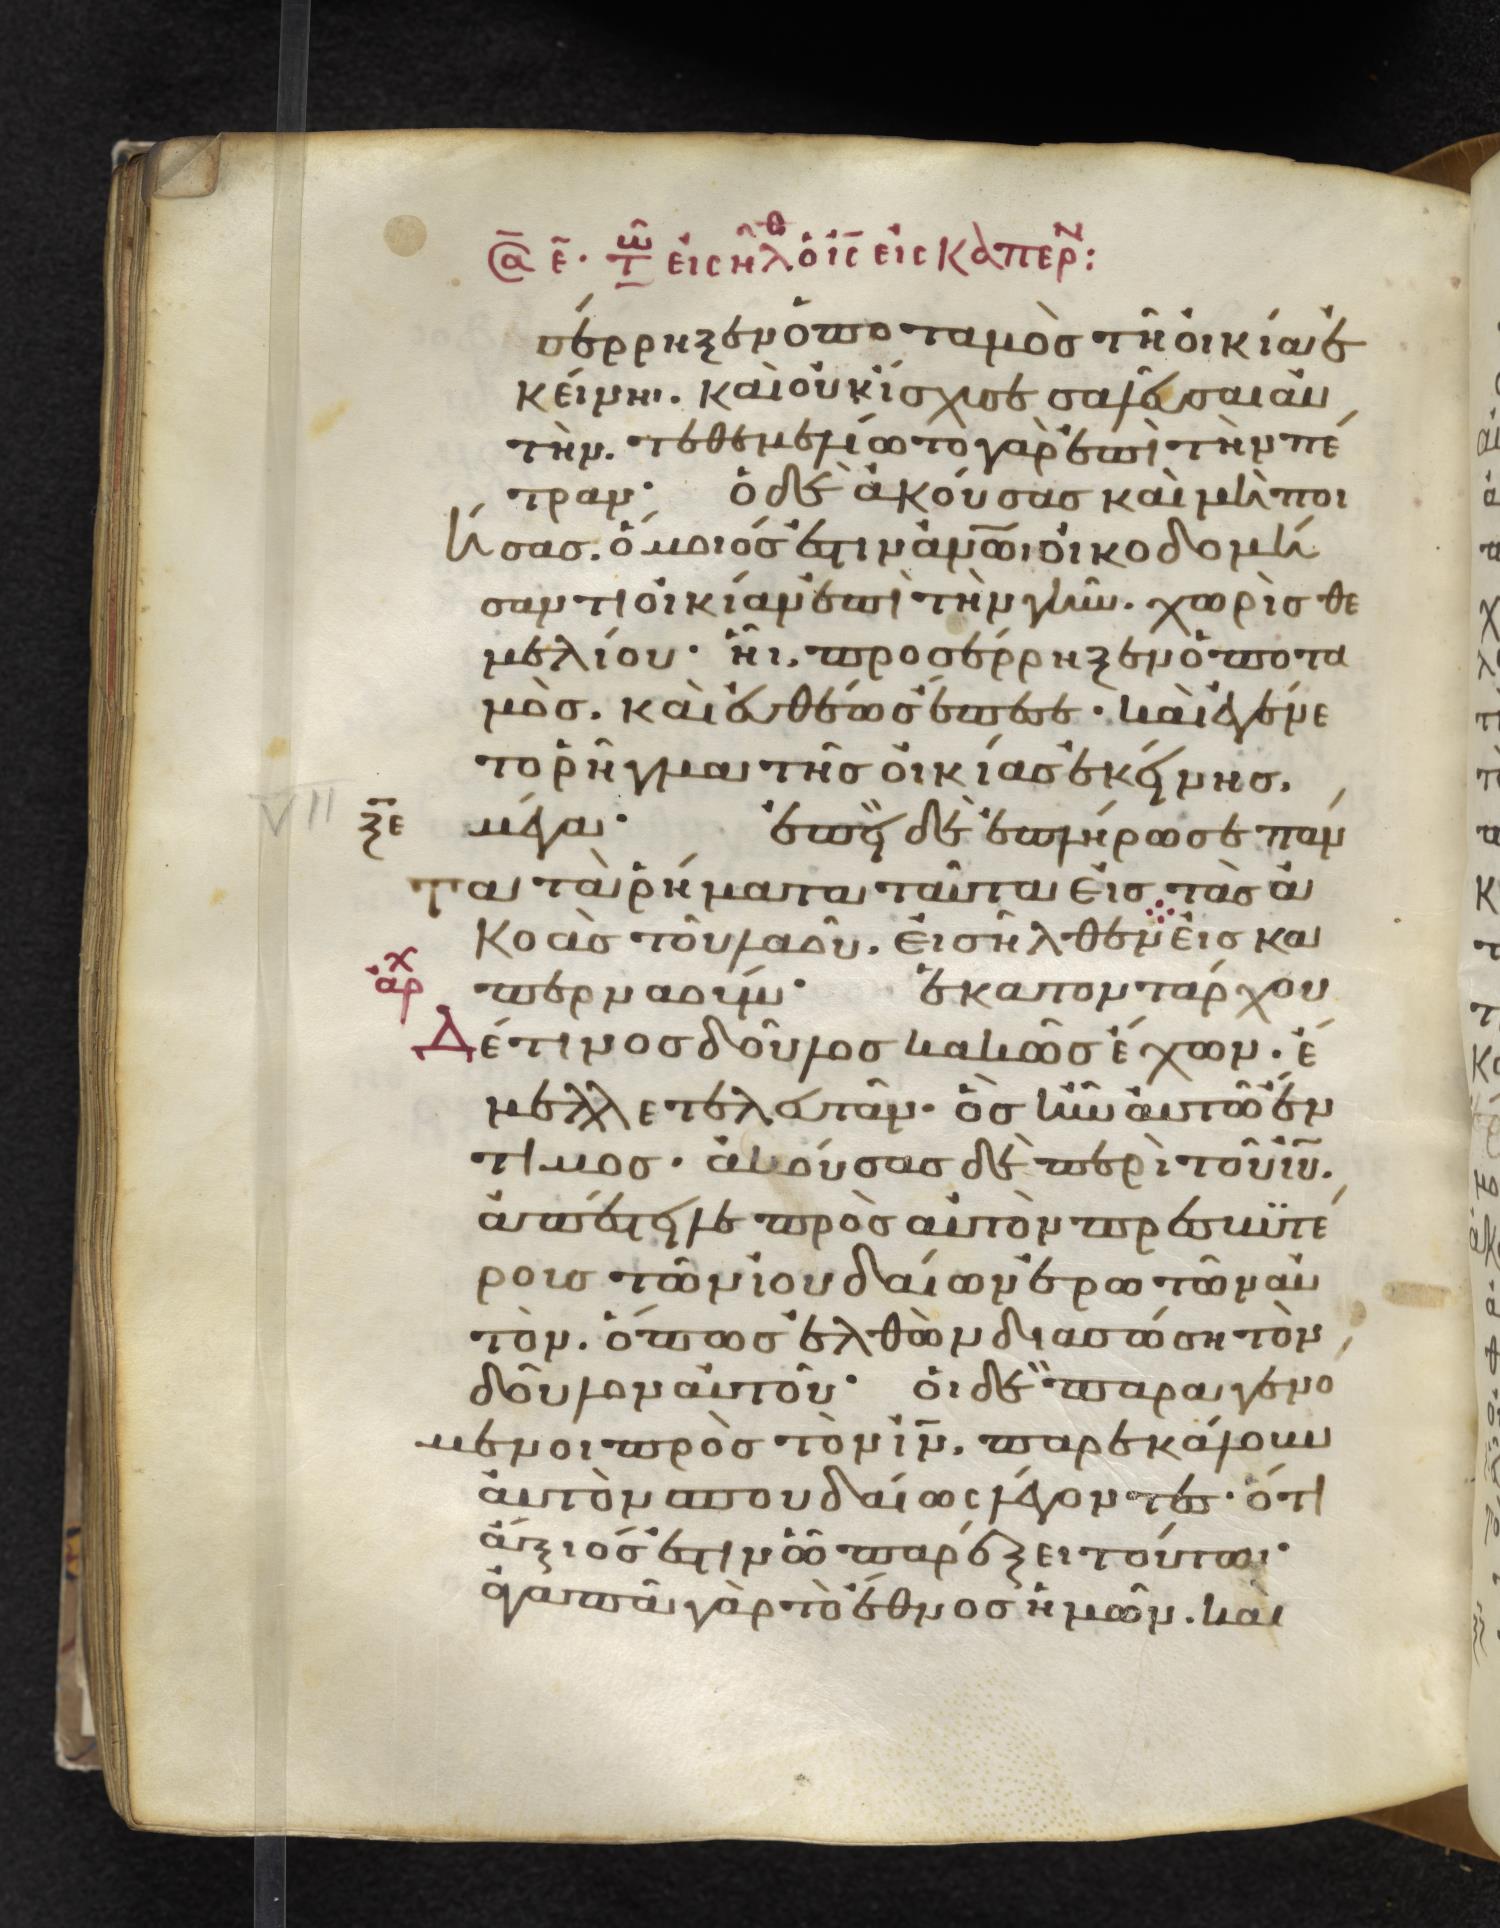 Σα ε̄· τω κ̅ εἰσῆλθ ὁ ι̅ς̅ εἰς Καπερν:
σέρρηξεν ὁ ποταμὸσ τῆ οἰκία ἐ
κείνηι. καὶ οὐκ ἴσχυσε σαλεῦσαι αὐ
τὴν. τεθεμελίωτο γὰρ ἐπὶ τὴν πέ
τραν· ὁ δὲ ἀκούσας καὶ μὴ ποι
ήσας. ὅμοιός ἐστιν ἀν̅ω̅ι οἰκοδομή
σαντι οἰκίαν ἐπὶ τὴν γῆν. χωρὶς θε
μελίου· ἧι. προσέρρηξεν ὁ ποτα
μὸς. καὶ εὐθέως ἔπεσε· καὶ ἐγένε
το ῥῆγμα τῆς οἰκίας ἐκείνης.
ξε μέγα· ἐπεὶ δὲ ἐπλήρωσε πάν
τα τὰ ῥήματα ταῦτα εἰς τὰς ἀ
κοὰς τοῦ λαοῦ. εἰσῆλθεν εἰς κα
αρχ περναούμ· ἑκατοντάρχου
Δέ τινος δοῦλος κακῶς ἔχων. ἔ
μελλε τελευτᾶν· ὃς ἦν αὐτῶ ἔν
τιμος· ἀκούσας δὲ περὶ τοῦ ι̅υ̅.
ἀπέστειλε πρὸς αὐτὸν πρεσβυτέ
ρους τῶν ἰουδαίων ἐρωτῶν αὐ
τὸν. ὅπως ἐλθὼν διασώση τὸν
δοῦλον αὐτοῦ· οἱ δὲ παραγενό
μενοι πρὸς τὸν ι̅ν̅. παρεκάλουν
αὐτὸν σπουδαίως λέγοντες· ὅτι
ἄξιός ἐστιν ὧ παρέξει τοῦτωι·
ἀγαπᾶ γὰρ τὸ ἔθνος ἡμῶν. καὶ